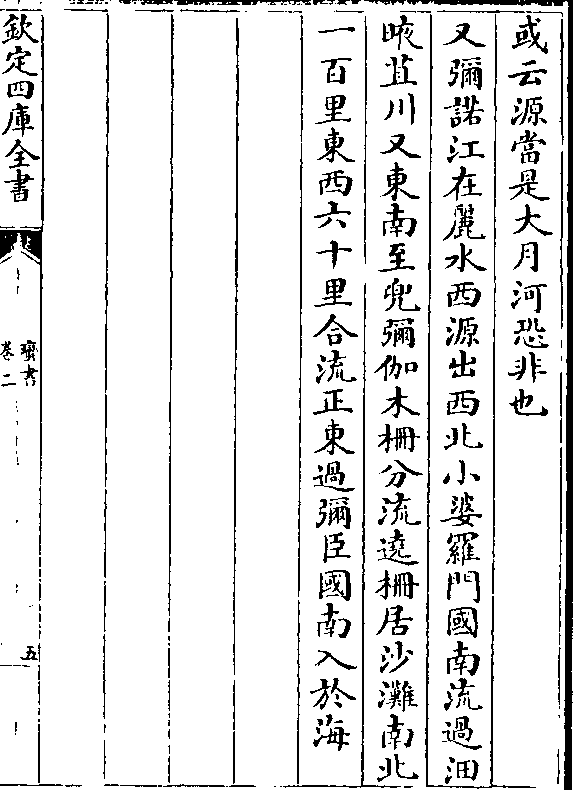 或云源當是大月河恐非也
又彌諾江在麗水西源出西北小婆羅門國南流過洱
㫊苴川又東南至兜彌伽木柵分流遶柵居沙灘南北
一百里東西六十里合流正東過彌臣國南入於海
欽定四庫全書
蠻書
卷二
五